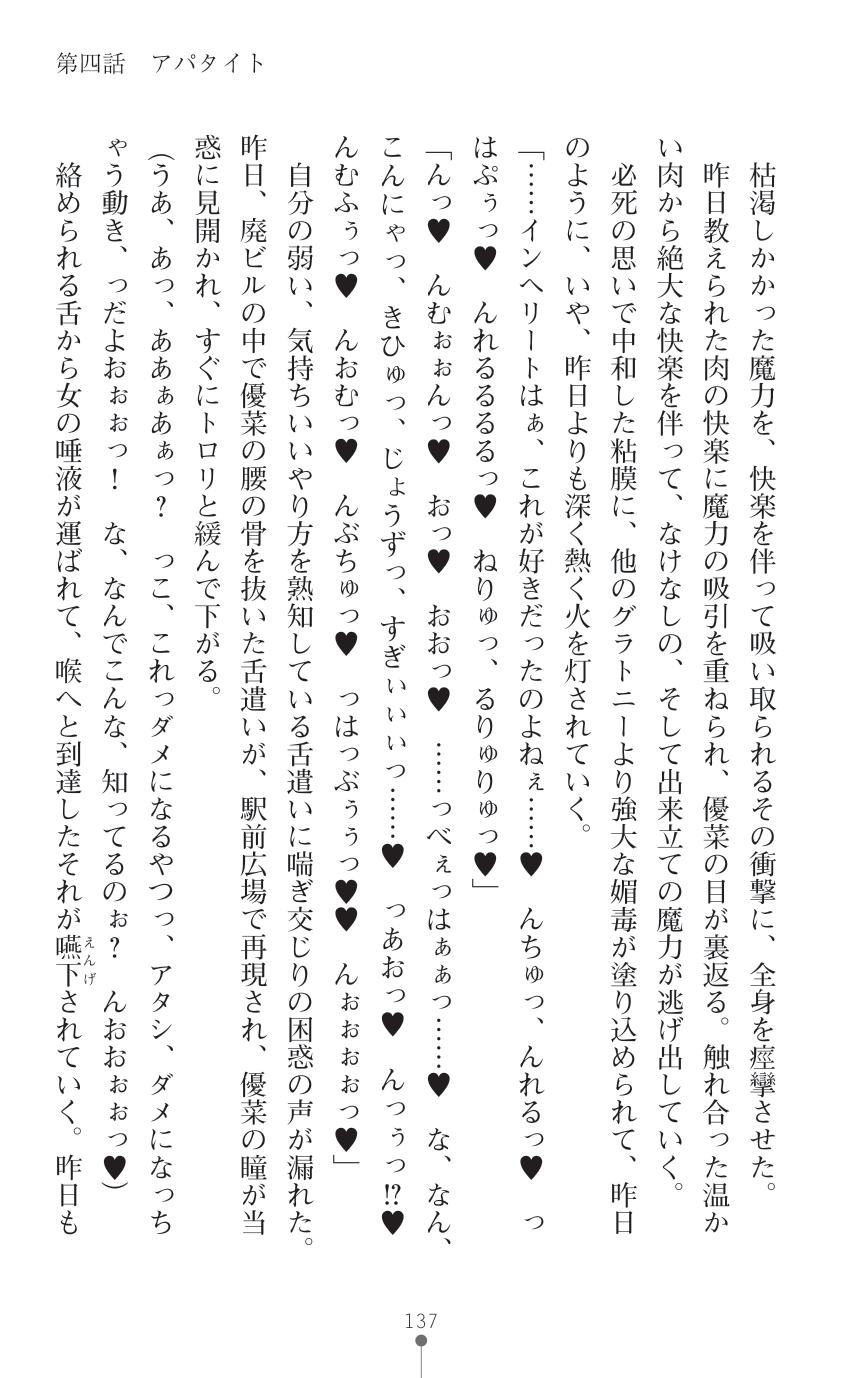 第四話　アパタイト
　枯渇しかかった魔力を、快楽を伴って吸い取られるその衝撃に、全身を痙攣させた。
　昨日教えられた肉の快楽に魔力の吸引を重ねられ、優菜の目が裏返る。触れ合った温か
い肉から絶大な快楽を伴って、なけなしの、そして出来立ての魔力が逃げ出していく。
　必死の思いで中和した粘膜に、他のグラトニーより強大な媚毒が塗り込められて、昨日
のように、いや、昨日よりも深く熱く火を灯されていく。
「……インヘリートはぁ、これが好きだったのよねぇ……♥　んちゅっ、んれるっ♥　っ
はぷぅっ♥　んれるるるるっ♥　ねりゅっ、るりゅりゅっ♥」
「んっ♥　んむぉぉんっ♥　おっ♥　おおっ♥　……っべぇっはぁぁっ……♥　な、なん、
こんにゃっ、きひゅっ、じょうずっ、すぎぃぃぃっ……♥　っあおっ♥　んっぅっ!?♥
んむふぅっ♥　んおむっ♥　んぶちゅっ♥　っはっぶぅぅっ♥♥　んぉぉぉぉっ♥」
　自分の弱い、気持ちいいやり方を熟知している舌遣いに喘ぎ交じりの困惑の声が漏れた。
昨日、廃ビルの中で優菜の腰の骨を抜いた舌遣いが、駅前広場で再現され、優菜の瞳が当
惑に見開かれ、すぐにトロリと緩んで下がる。
（うあ、あっ、ああぁあぁっ？　っこ、これっダメになるやつっ、アタシ、ダメになっち
ゃう動き、っだよおぉぉっ！　な、なんでこんな、知ってるのぉ？　んおおぉぉっ♥）
　絡められる舌から女の唾液が運ばれて、喉へと到達したそれが嚥下されていく。昨日も
えんげ
137